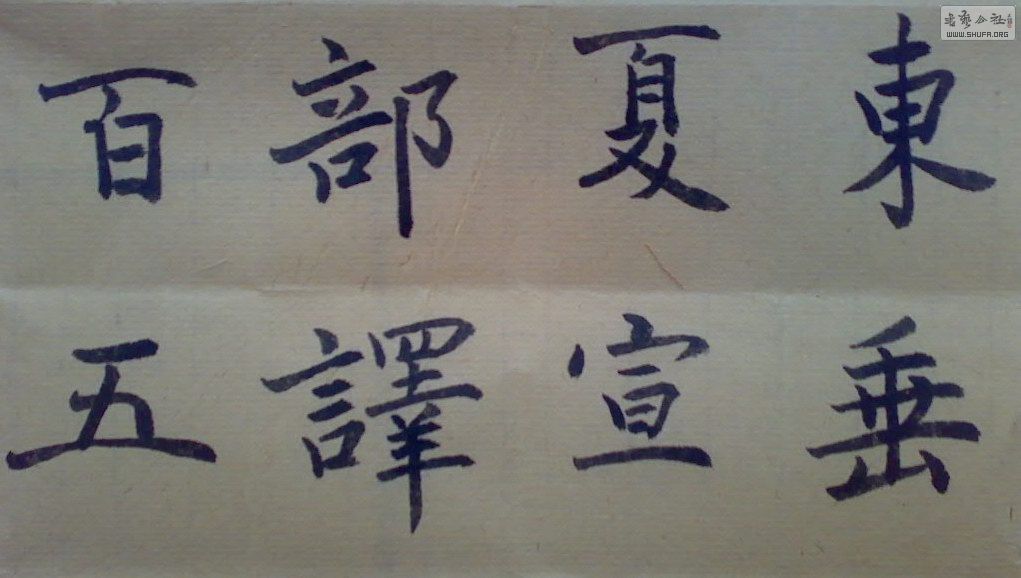 百五
部譯
夏宣
東垂
書藝公社
WWW.SHUFA.ORG